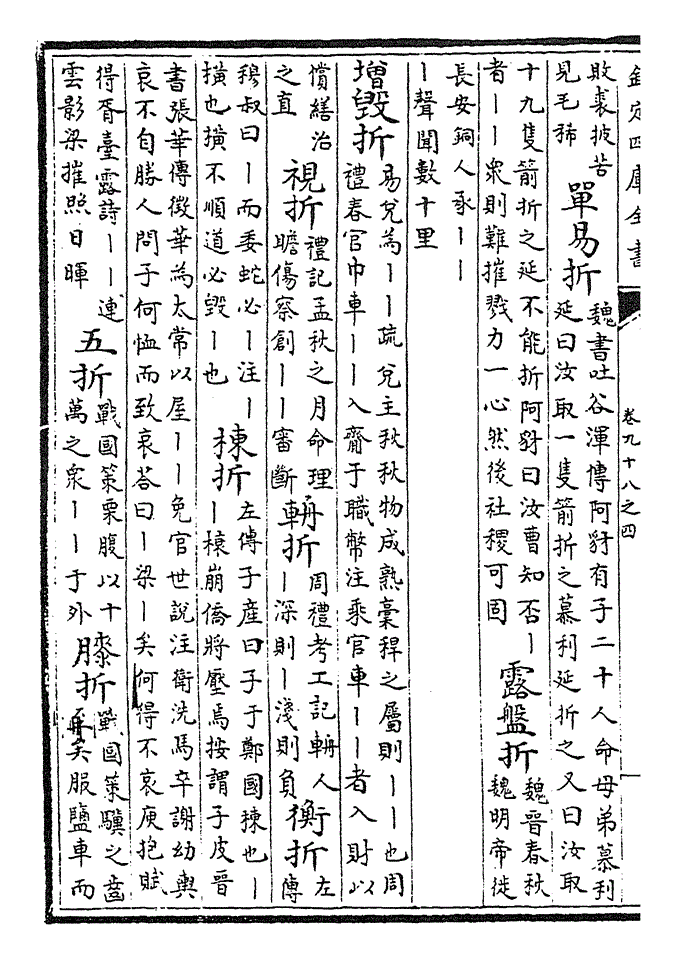 欽定四庫全書
卷九十八之四
敗裘披苦
見毛稀
單易折
魏書吐谷渾傳阿豺有子二十人命母弟慕利
延曰汝取一隻箭折之慕利延折之又曰汝取
十九隻箭折之延不能折阿豺曰汝曹知否丨
者丨丨衆則難摧戮力一心然後社稷可固
露盤折
魏晉春秋
魏明帝徙
長安銅人承丨丨
丨聲聞數十里
增毀折
易兌為丨丨疏兌主秋秋物成熟稾稈之屬則丨丨也周
禮春官巾車丨丨入齎于職幣注乘官車丨丨者入財以
償繕治
之直
視折
禮記孟秋之月命理
瞻傷察創丨丨審斷
輈折
周禮考工記輈人
丨深則丨淺則負
衡折
左
傳
穆叔曰丨而委蛇必丨注丨
橫也橫不順道必毀丨也
棟折
左傳子產曰子于鄭國棟也丨
丨榱崩僑將壓焉按謂子皮晉
書張華傳徵華為太常以屋丨丨免官世說注衛洗馬卒謝幼輿
哀不自勝人問子何恤而致哀荅曰丨梁丨矣何得不哀庾抱賦
得胥臺露詩丨丨連
雲影梁摧照日暉
五折
戰國策栗腹以十
萬之衆丨丨于外
膝折
戰國策驥之齒
矣服鹽車而